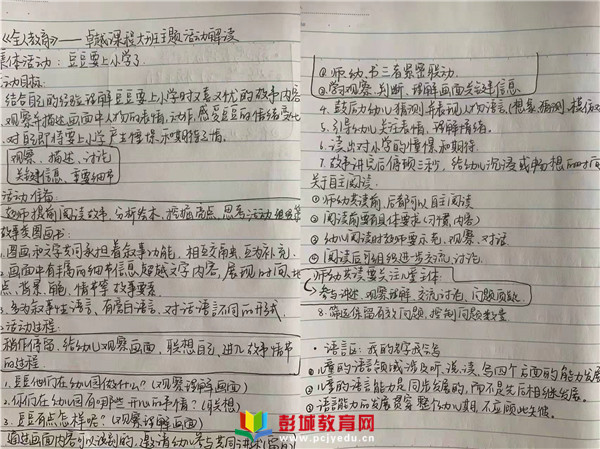 《全人教育》——卓越课程大班主题活动解读
集体活动：豆豆要上小学了
活动目标：
结合自己的经验理解豆豆要上小学时又喜又忧的故事内容
观察并描述画面中人物的表情、动作，感受豆豆的情绪变化
对自己即将要上小学产生憧憬和期待之情。
观察、描述、讨论
关键信息、重要细节
活动准备：
教师提前阅读故事，分析绘本，思考活动组织
故事类图画书：
1.图画和文学共同承担着叙事功能，相互交融，互为补充.
2.画面中有丰富的细节信息，超越文字内容，展现时间、地
点、背景、角色、情节等故事要素
3.多为叙事性语言，有旁白语言、对话语言不同的形式.
活动过程：
稍作停留，给幼儿观察画面，联想自己，进入故事情节
的过程.
1.豆豆他们在幼儿园做什么？(观察理解画面)
2.你们在幼儿园有哪些开心的事情？(相关想)
3.豆豆有点怎样呢？(观察理解画面)
通过画面内容可以读到的，邀请幼儿参与共同讲述
②师、幼、书三者紧密联动.
③学习观察、判断、理解画面关键信息.
4.鼓励幼儿猜测并表现人物语言(想象、猜测、模仿
5.引导幼儿关注表情，理解情绪.
6.读出对小学的憧憬和期待.
7.故事讲完后停顿三秒，给幼儿沉浸或畅想的时间
关于自主阅读：
①师幼共读前、后都可以自主阅读
②阅读前要有具体要求(习惯、内容)
③幼儿阅读时教师要示范、观察、对话
④阅读后可组织进步交流、讨论.
师幼共读要关注儿童主体
参与讲述、观察理解、交流讨论、问题质疑
8.筛选保留有效问题，控制问题数量
·语言区：我的名字我会写
①儿童的语言领域涉及听、说、读、写四个方面的能力发展
②儿童的语言能力是同步发展的，而不是先后相继发展.
③语言能力的发展贯穿整个幼儿期，不应顾此失彼.
彭城教育网
www.pcjyedu.cn